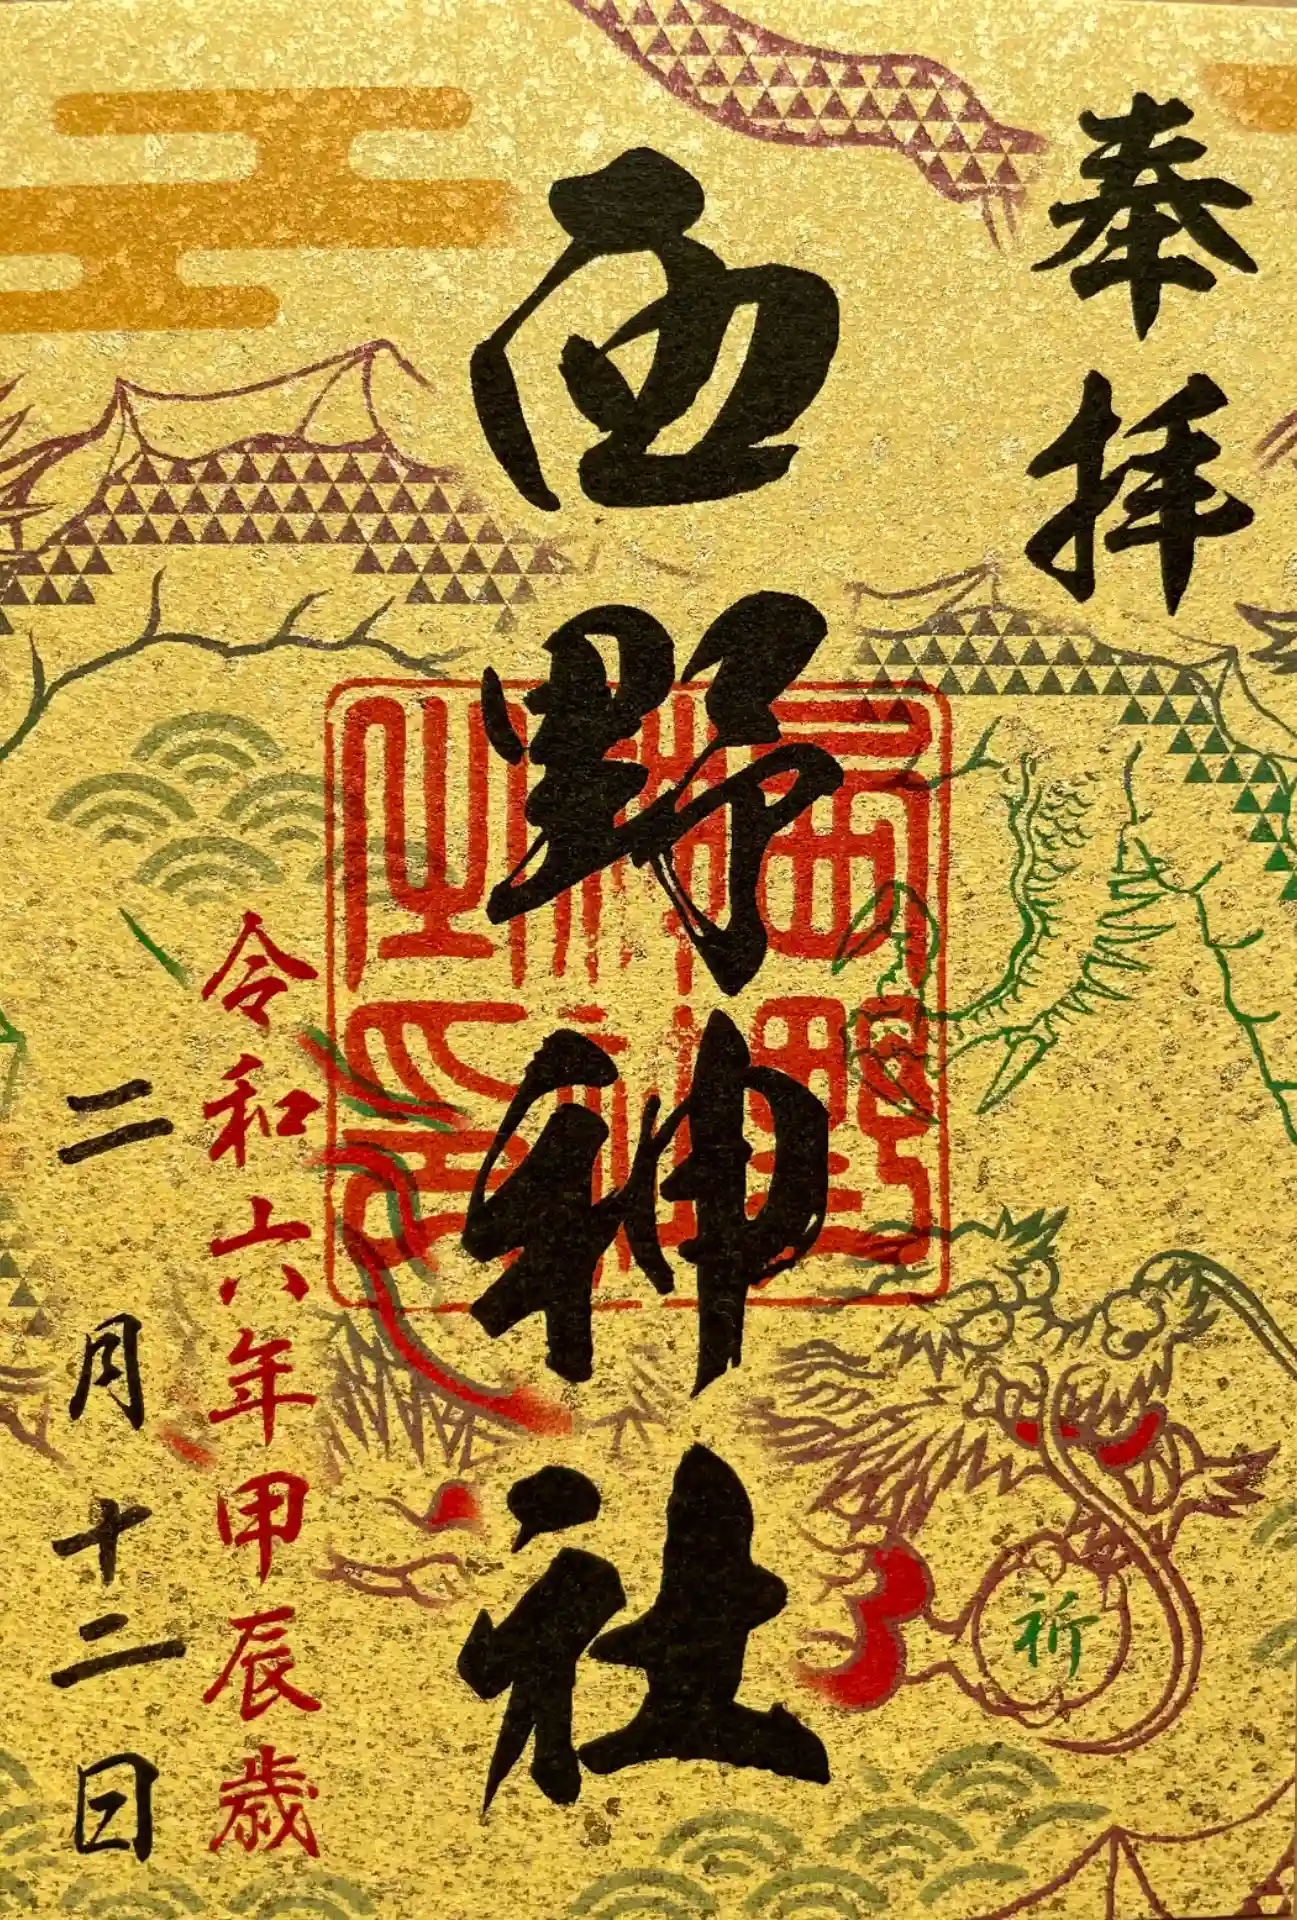 奉拝
西野神社
西野神社之印
令和六年甲辰歳
二月十二日
祈